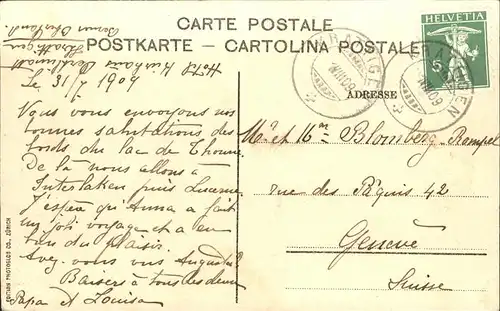 CARTE POSTALE
POSTKARTE - CARTOLINA POSTALE
ADRESSE
HELVETIA
5
KRATTIGEN
KRATTIGEN
Hôtel Kurhaus
Krattigen
Berner Oberland
Le 31/7 1909
Nous vous envoyons nos
bonnes salutations des
bords du lac de Thoune.
De là nous allons à
Interlaken puis Lucerne.
J'espère qu'Anna a fait
un joli voyage et a eu
bien du plaisir.
Avez vous vu Augusta?
Baisers à tous les deux
Papa et Louisa
Mr et Me Blomberg-Rampel
rue des Pâquis 42
Genève
Suisse
EDITION PHOTOGLOB CO., ZÜRICH